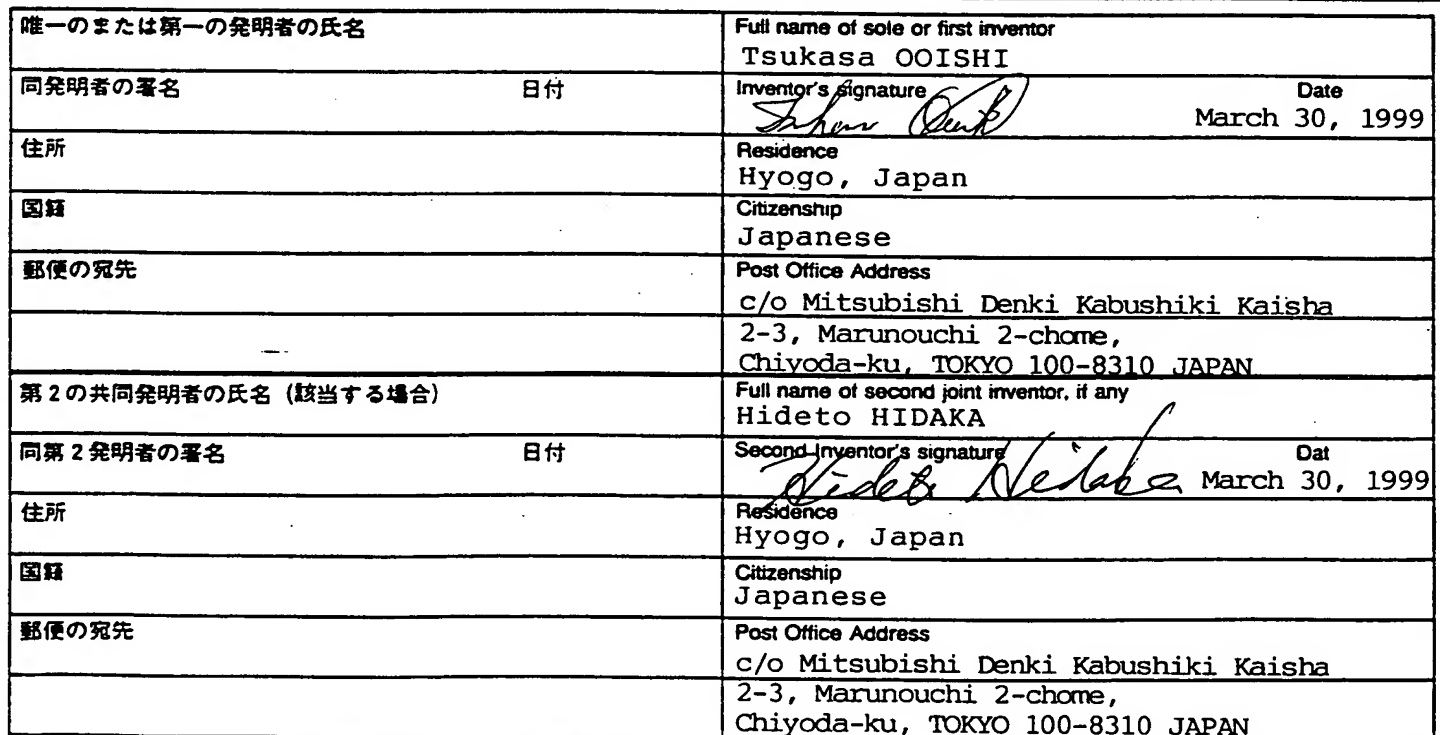 唯一のまたは第一の発明者の氏名
Full name of sole or first inventor
Tsukasa OOISHI
同発明者の署名 日付
Inventor's signature Date
March 30, 1999
住所
Residence
Hyogo, Japan
国籍
Citizenship
Japanese
郵便の宛先
Post Office Address
c/o Mitsubishi Denki Kabushiki Kaisha
2-3, Marunouchi 2-chome,
Chiyoda-ku, TOKYO 100-8310 JAPAN
第2の共同発明者の氏名(該当する場合)
Full name of second joint inventor, if any
Hideto HIDAKA
同第2発明者の署名 日付
Second Inventor's signature Dat
Hideto Hidaka March 30, 1999
住所
Residence
Hyogo, Japan
国籍
Citizenship
Japanese
郵便の宛先
Post Office Address
c/o Mitsubishi Denki Kabushiki Kaisha
2-3, Marunouchi 2-chome,
Chiyoda-ku, TOKYO 100-8310 JAPAN